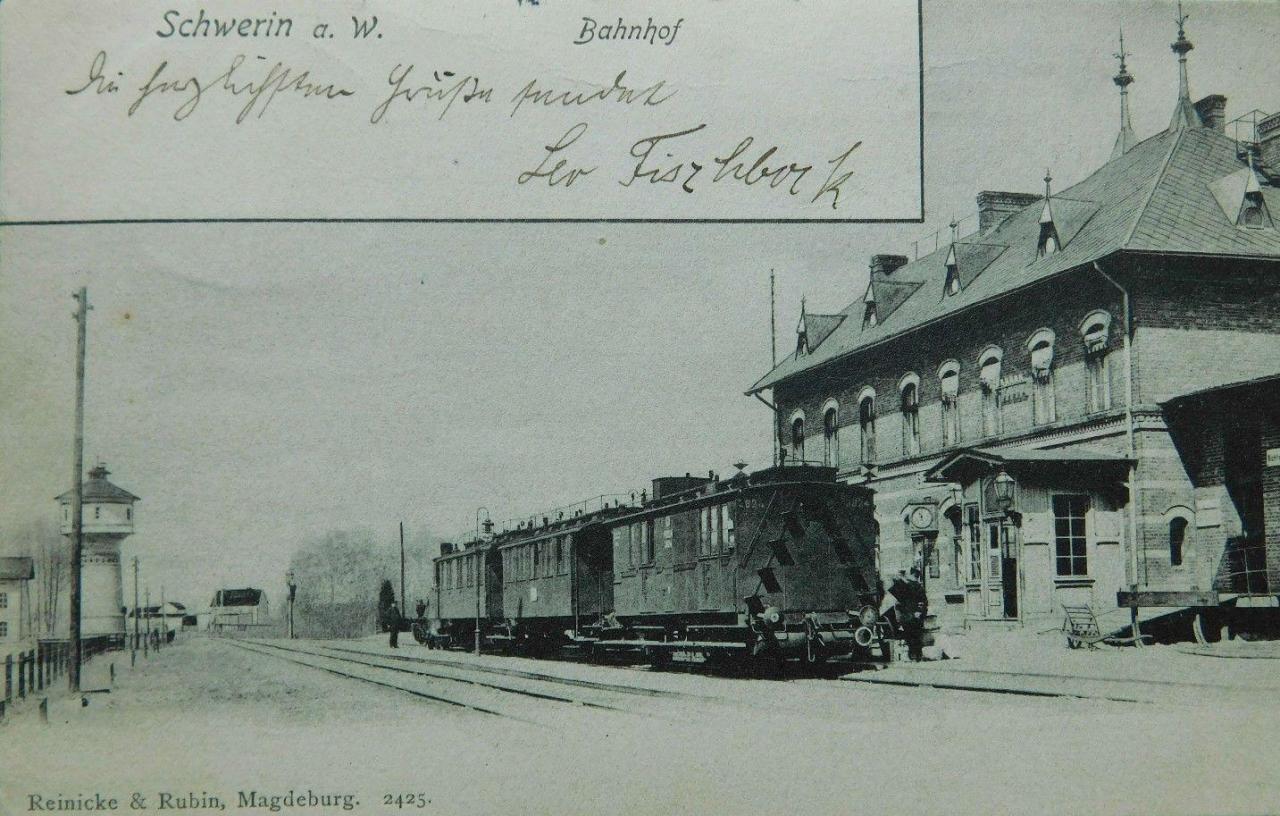 Schwerin a. W. Bahnhof
Die herzlichsten Grüße sendet
Leo Fischbock
Reinicke & Rubin, Magdeburg. 2425.